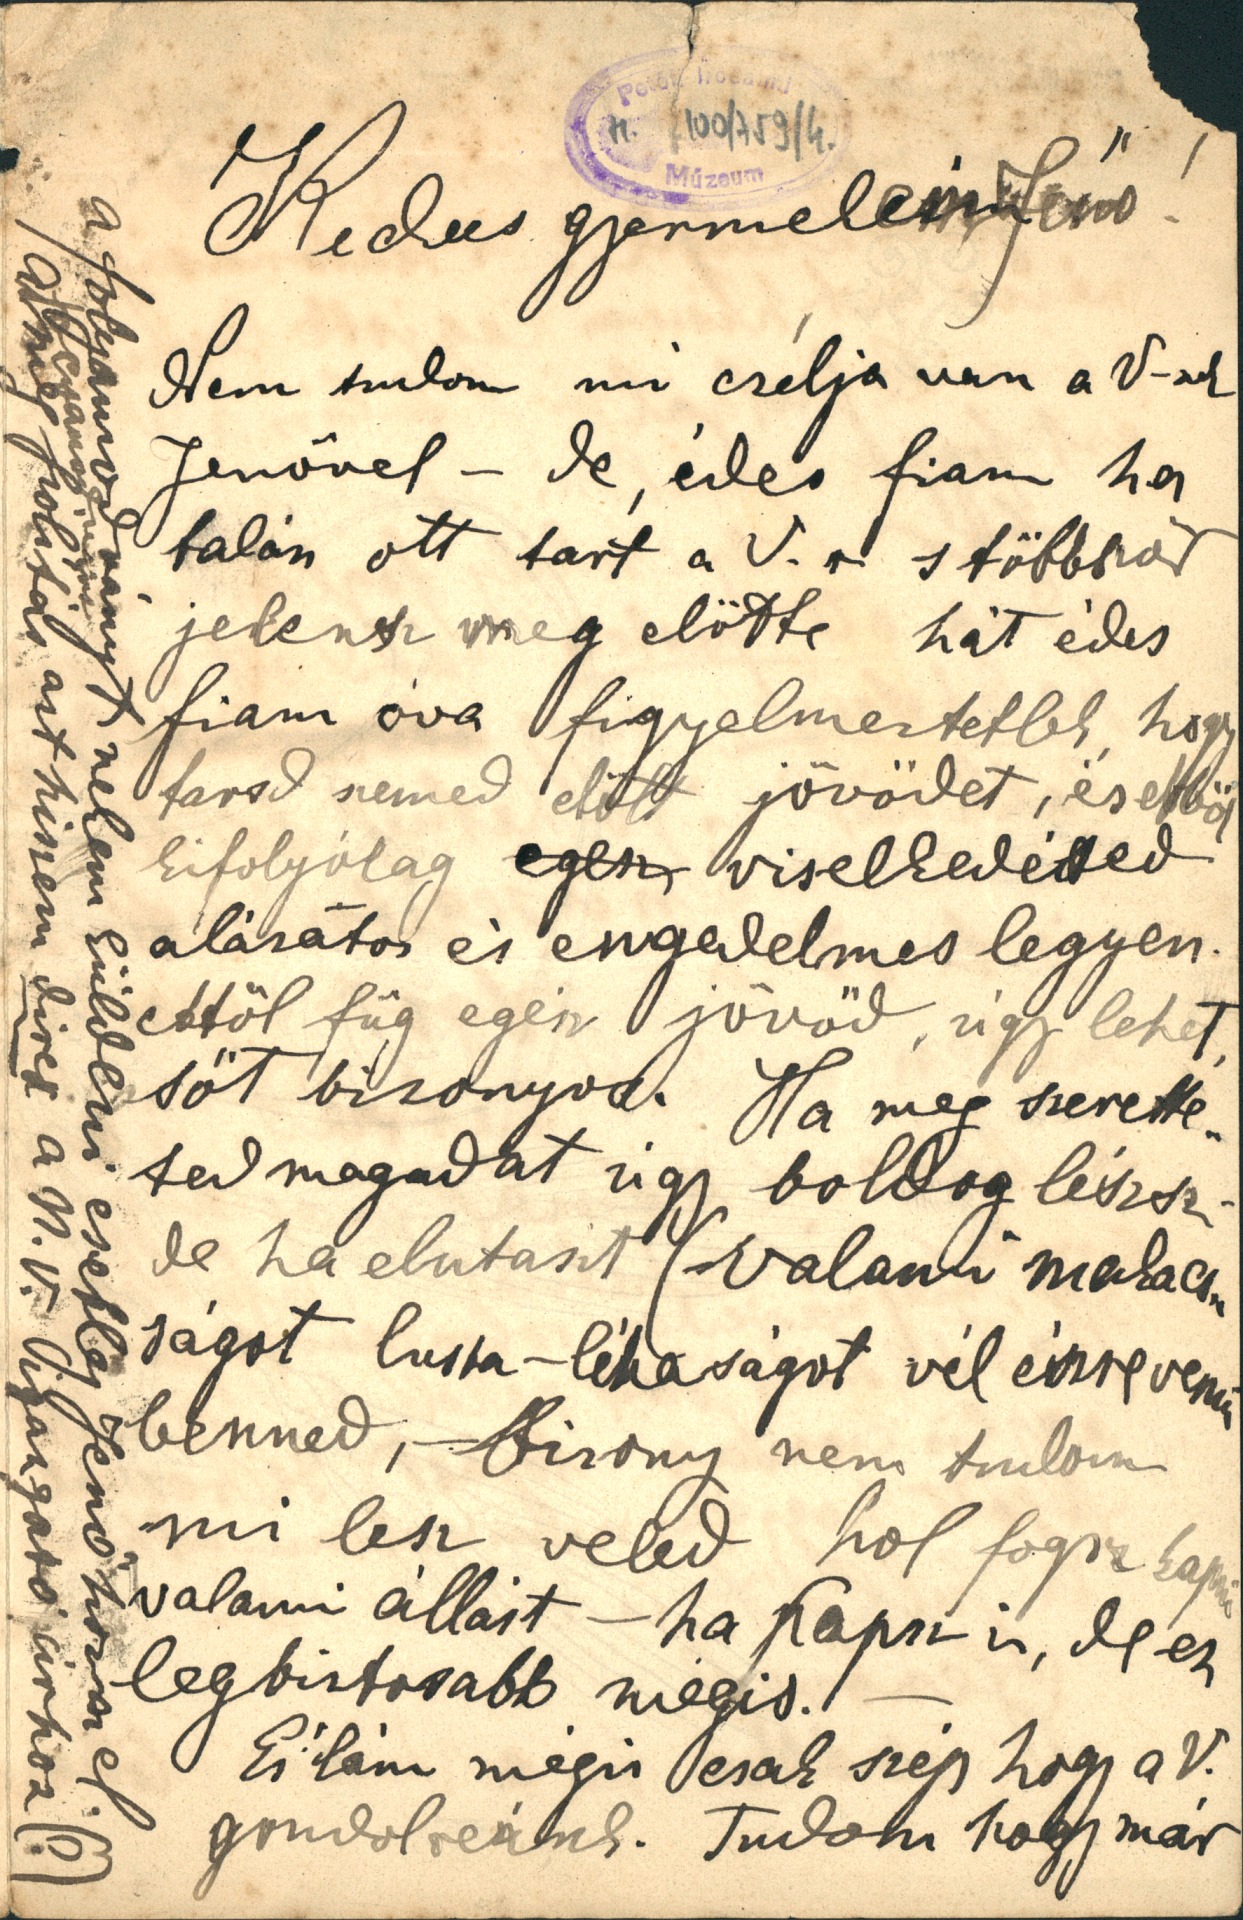 Petőfi Irodalmi
Múzeum
100/759/4.
Kedves gyermekeim Jenő!
Nem tudom mi czélja van a V-nek
Jenővel – de, édes fiam ha
talán ott tart a V. s többször
jelensz meg előtte hát édes
fiam óva figyelmeztetlek, hogy
tarsd szemed előtt jövödet, és ebből
kifolyólag egész viselkedésed
alázatos és engedelmes legyen.
ettöl füg egész jövöd, úgy lehet,
söt bizonyos. Ha meg szerette-
ted magadat úgy boldog lészsz-
de ha elutasit (valami makacs-
ságot lusta-léhaságot vél észrevenni
benned, – Bizony nem tudom
mi lesz veled hol fogsz kapni
valami állást – ha kapsz is, de ez
legbiztosabb mégis. —
Ei lám mégis csak szép hogy a V.
gondol reánk. Tudom hogy már
a folyamodványt nekem küldeni esetleg Jenő hozza el.
A meg hívás azt hiszem direct a N. V. Igazgató úrhoz (?)